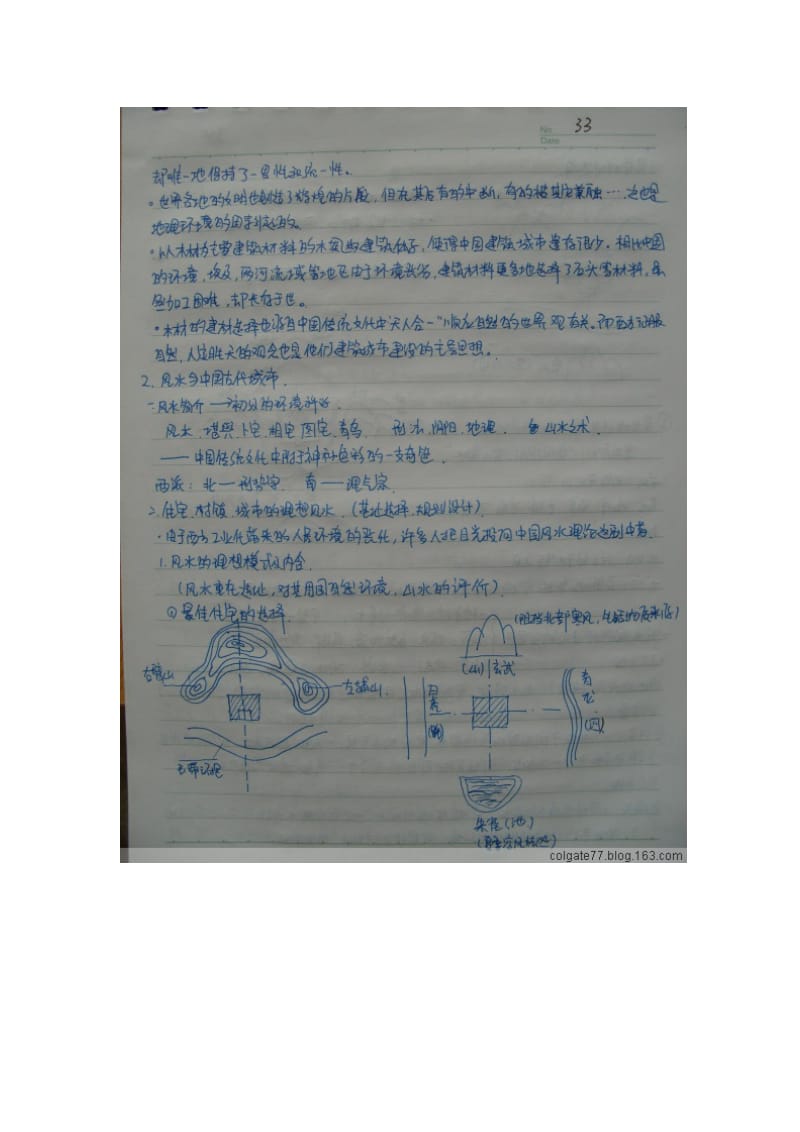 No 33
Date
却唯一地保持了一贯性和统一性。
·世界各地的文明也创造了辉煌的片段,但在其后有的中断,有的被其它兼融…,这也是
地理环境的因素引起的。
·以木材为主要建筑材料的木简也建筑体系,使得中国建筑、城市遗存很少,相比中国
的环境,埃及,两河流域等地已由于环境恶劣,建筑材料更多地选择了石头等材料,虽
然加工困难,却长存于世。
·木材的建材选择也许与中国传统文化中"天人合一"顺应自然的世界观有关。而西方征服
自然,人定胜天的观念也是他们建筑城市建设的主导思想。
2.风水与中国古代城市.
一.风水简介→初分的环境评价.
风水.堪舆.卜宅.相宅.图宅.青乌 形法.阴阳.地理. 山水之术.
——中国传统文化中附于神秘色彩的一支奇葩.
两派:北—形势宗 南——理气宗.
2.住宅、村镇、城市的理想风水.(基址选择、规划设计).
·由于西方工业化带来的人居环境的恶化,许多人把目光投向中国风水理论这副中药.
1.风水的理想模式及内含.
(风水重在选址,对其周围自然环境,山水的评价).
①最佳住宅的选择.
(阻挡北部寒风,生活物质来源)
(山)玄武
右辅山
左辅山.
白虎
(路)
青龙
(河)
玉带环抱
朱雀(池)
colgate77.blog.163.com